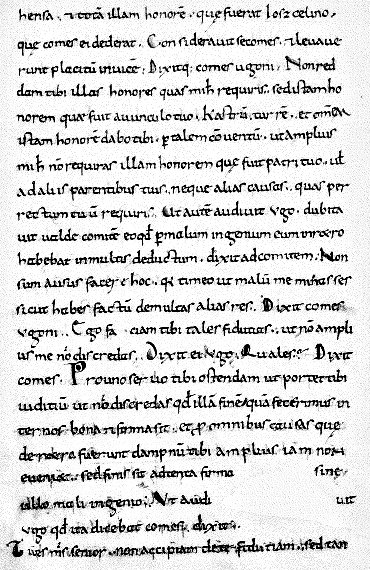 hensa. & tota illam honore. que fuerat Ioszcelino.
que comes ei dederat. Consideravit se comes. & levave
runt placitu invice. Dixitq; comes ugoni. Non red
dam tibi illas honores quas mihi requiris. sed istam ho
norem que fuit avunculo tuo. Kastru. turre. et omem
istam honore dabo tibi. p tale conventu. ut amplius
mihi no requiras illam honorem que fuit patri tuo. vl
ad aliis parentibus tuis. neque alias causas. quas per
rectum tuu requiris. Ut aute audivit Ugo. dubita
vit valde comite eo qd p malum ingenium eum in retro
habebat in multis deductum. dixit ad comitem. Non
sum ausus facere hoc. q timeo ut malu me minasses
sicut habes factu de multas alias res. Dixit comes
ugoni. Ego fa ciam tibi tales fiducias. ut no ampli
us me no discredas. Dixit ei Ugo. Quales? Dixit
comes. Pro uno servo tibi ostendam ut portet tibi
iuditiu ut no discredas qd illa fine qua fecerimus in
ter nos bona ti firma sit. et p omnibus causas que
de retro fuerunt dampnu tibi amplius iam non
eveniat. sed finis sit adtenta firma sine
ullo malo ingenio. Ut audi vit
ugo qd ita dicebat comes. dixit.
Tu es ms senior. non accipiam de te fidutiam. sed tan